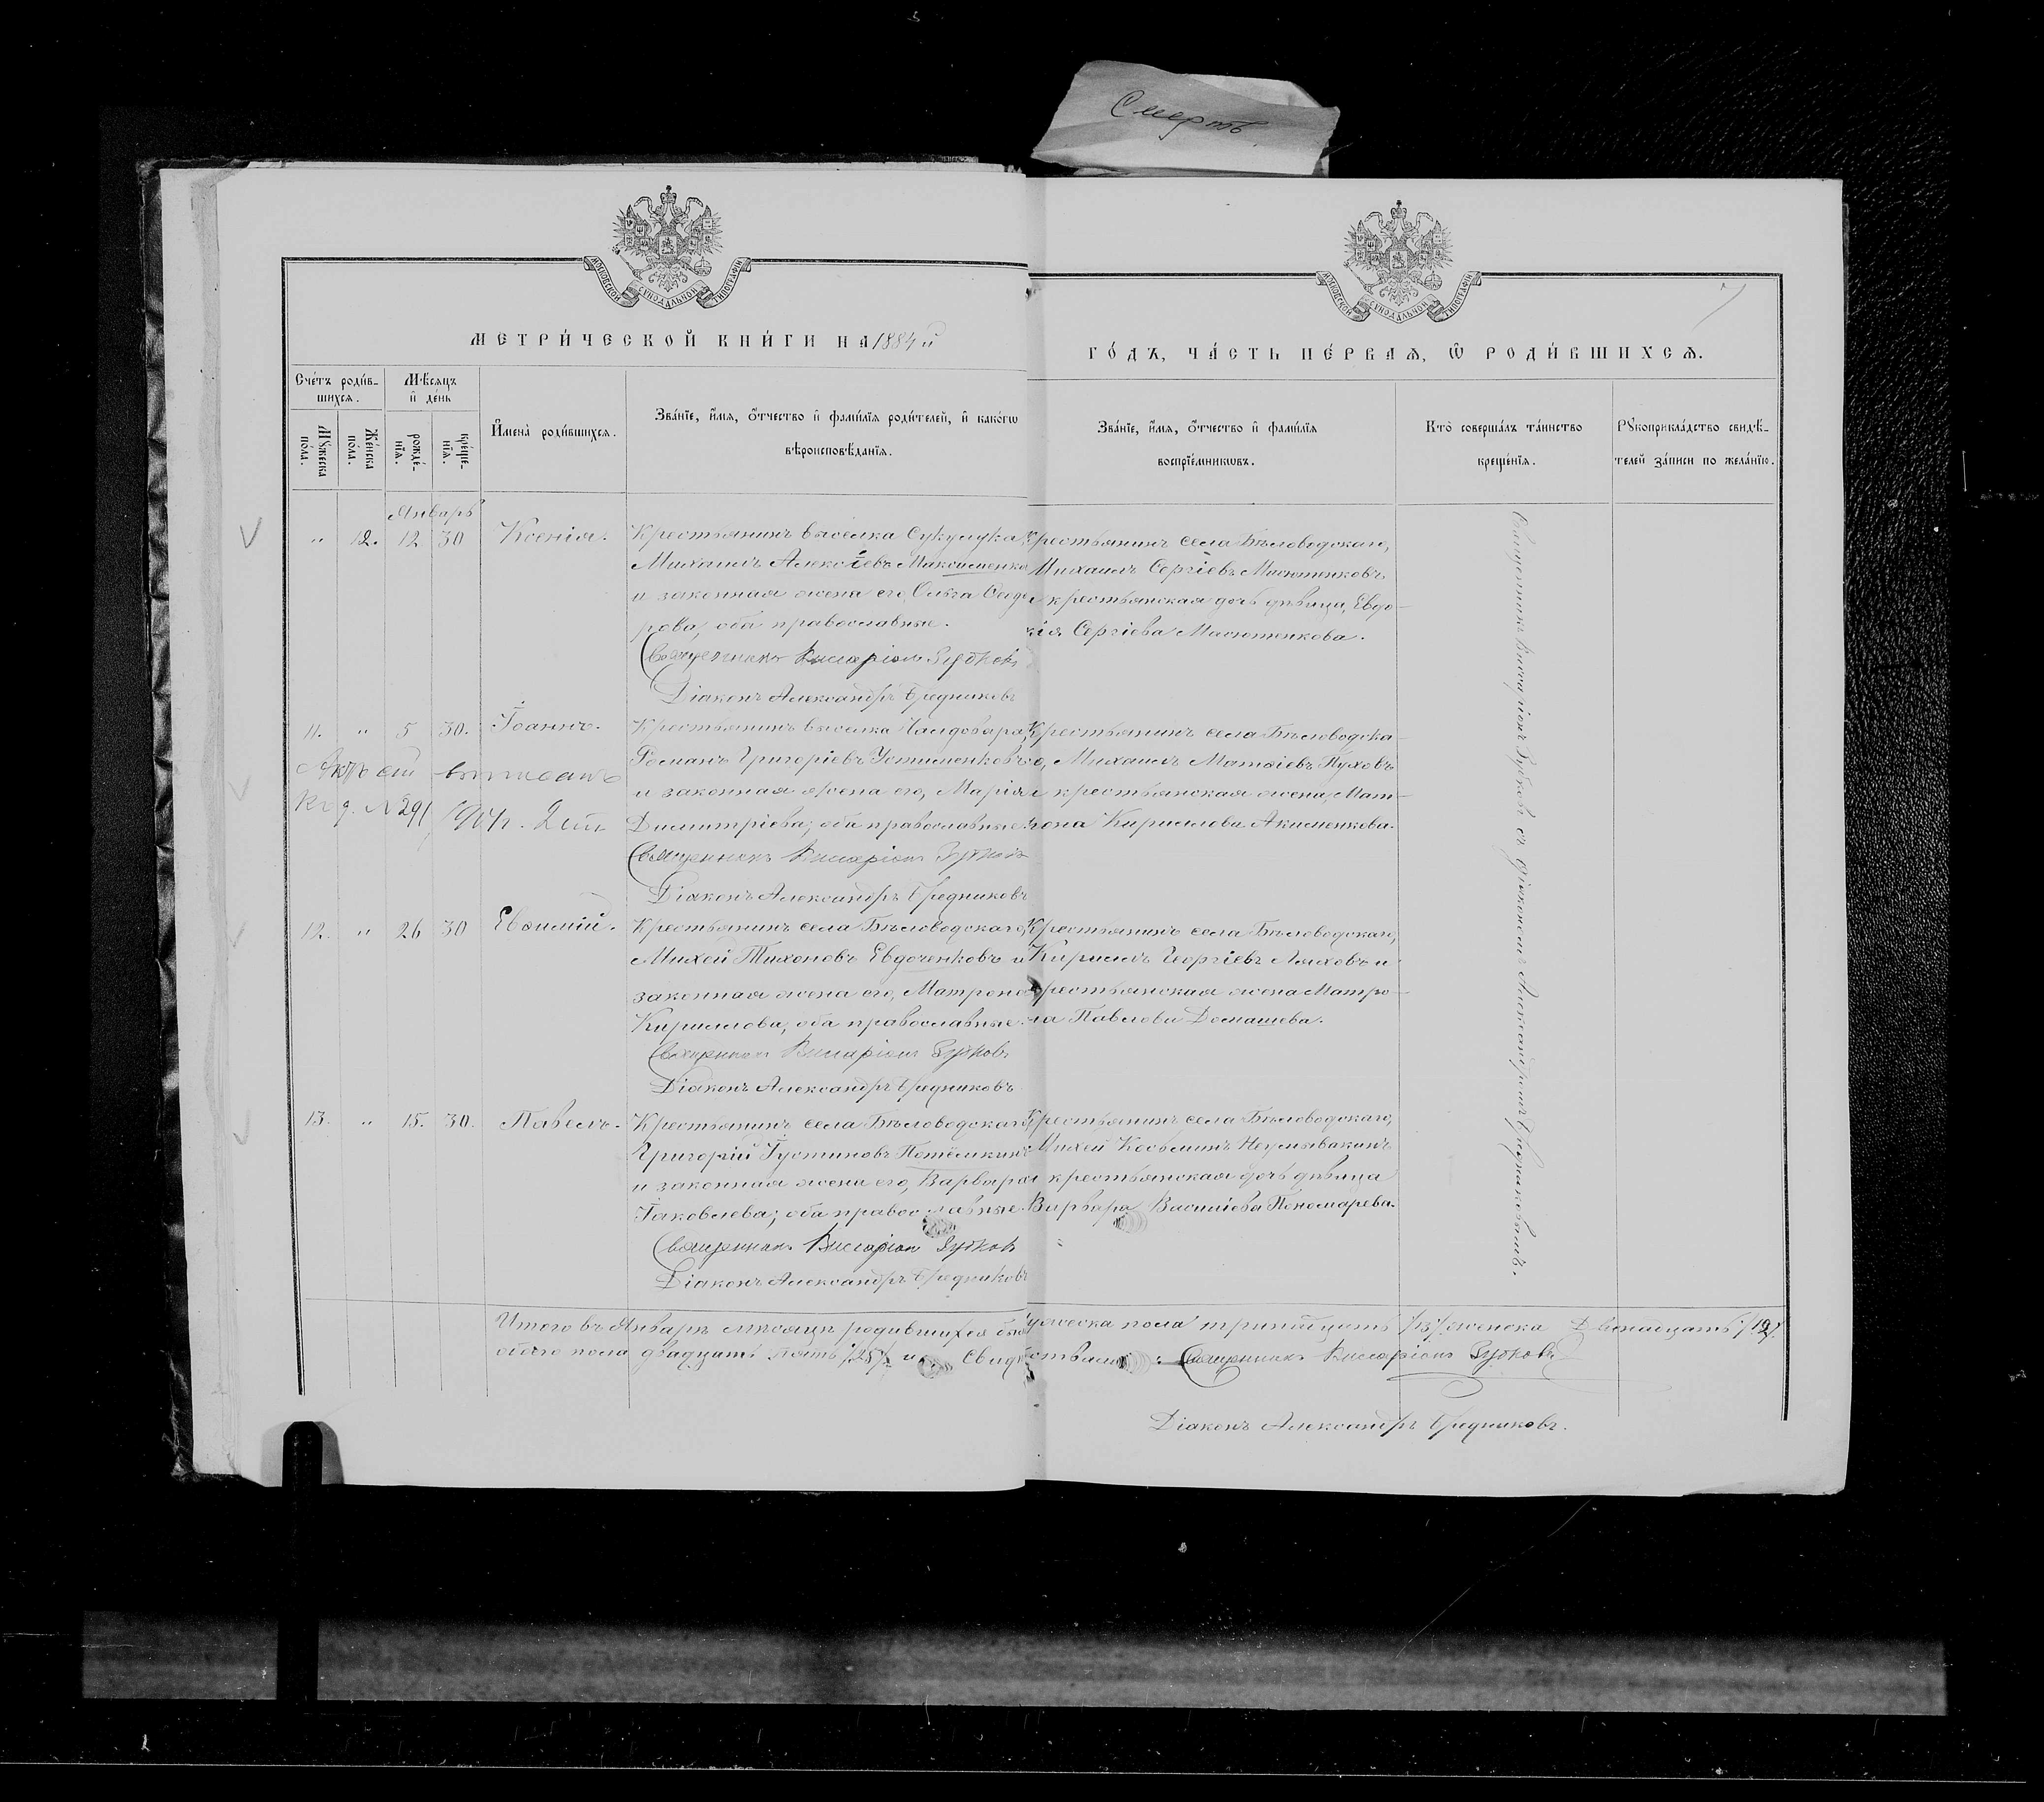 Смерть
МОСКОВСКОЙ СѴНОДАЛЬНОЙ ТИПОГРАФІИ
МОСКОВСКОЙ СѴНОДАЛЬНОЙ ТИПОГРАФІИ
МЕТРИ́ЧЕСКОЙ КНИ́ГИ НА 1884 й
ГО́ДЪ, ЧА́СТЬ ПЕ́РВАѦ, Ѿ РОДИ́ВШИХСѦ.
Сче́тъ роди́в-
шихсѧ.
Мѣсѧцъ
и҆ де́нь
Мꙋ́жеска по́ла.
Же́нска по́ла.
рожде́-нїѧ.
креще́-нїѧ.
И҆мена̀ роди́вшихсѧ.
Зва́нїе, и҆́мѧ, ѻ҆́тчество и҆ фами́лїѧ роди́телей, и҆ како́гѡ
вѣроисповѣ́данїѧ.
Зва́нїе, и҆́мѧ, ѻ҆́тчество и҆ фами́лїѧ
воспрїе́мникѡвъ.
Кто̀ соверша́лъ та́инство
креще́нїѧ.
Рꙋкоприкла́дство свидѣ́-
телей за́писи по жела́нїю.
Январь
" 12. 12 30 Ксенія.
Крестьянинъ выселка Сукулука,
Михаилъ Алексіевъ Максименко
и законная жена его, Ольга Феодо
рова, оба православные.
Священникъ Виссаріонъ Зубковъ
Діаконъ Александръ Бредниковъ
Крестьянинъ села Бѣловодскаго,
Михаилъ Сергіевъ Масютенковъ
и крестьянская дочь дѣвица, Евдо-
кія Сергіева Масютенкова.
11. " 5 30. Іоаннъ.
Актъ сей выписанъ
Крестьянинъ выселка Чалдовара,
Романъ Григоріевъ Устименковъ
и законная жена его, Марія
Димитріева; оба православные.
Священникъ Виссаріонъ Зубковъ
Діаконъ Александръ Бредниковъ
Крестьянинъ села Бѣловодска-
го, Михаилъ Матѳіевъ Пуховъ
и крестьянская жена, Мат-
рона Кириллова Акименкова.
12. " 26 30 Евѳимій.
Крестьянинъ села Бѣловодскаго,
Михей Тихоновъ Евдоченковъ и
законная жена его, Матрона
Кириллова, оба православные.
Священникъ Виссаріонъ Зубковъ
Діаконъ Александръ Бредниковъ
Крестьянинъ села Бѣловодскаго,
Кириллъ Георгіевъ Ляховъ и
крестьянская жена Матро-
на Павлова Домашева.
13. " 15. 30. Павелъ.
Крестьянинъ села Бѣловодскаго,
Григорій Іустиновъ Потёмкинъ
и законная жена его, Варвара
Іаковлева; оба православные.
Священникъ Виссаріонъ Зубковъ
Діаконъ Александръ Бредниковъ
Крестьянинъ села Бѣловодскаго,
Михей Косьминъ Неумывакинъ
и крестьянская дочь дѣвица
Варвара Василіева Пономарева.
Священникъ Виссаріонъ Зубковъ съ діакономъ Александромъ Бредниковымъ.
Итого въ Январѣ мѣсяцѣ родившихся мужеска пола тринадцать /13/ женска двенадцать /12/.
обоего пола двадцать пять /25/ Священникъ Виссаріонъ Зубковъ
Діаконъ Александръ Бредниковъ.